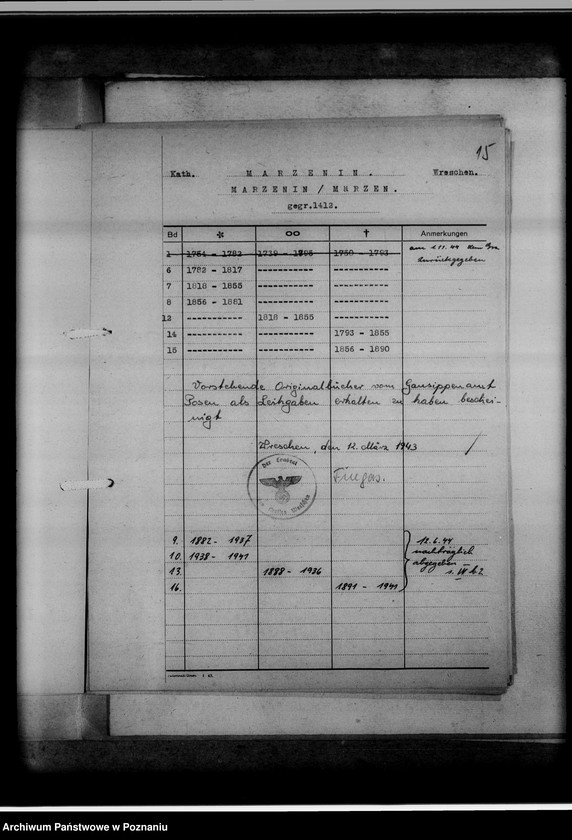 15
Kath. MARZENIN. Wreschen.
MARZENIN / MARZEN.
gegr.1412.
Bd * ∞ † Anmerkungen
1 1754 - 1782 1739 - 1795 1750 - 1793 am 1.11.44
zurückgegeben
6 1782 - 1817 ----------- -----------
7 1818 - 1855 ----------- -----------
8 1856 - 1881 ----------- -----------
12 ----------- 1818 - 1855 -----------
14 ----------- ----------- 1793 - 1855
15 ----------- ----------- 1856 - 1890
Vorstehende Originalbücher vom Gausippenamt
Posen als Leihgaben erhalten zu haben beschei-
nigt
Wreschen, den 12. März 1943
Der Landrat
9. 1882 - 1937 12.6.44
10. 1938 - 1941 nachträglich
abgegeben
13. 1888 - 1936
16. 1891 - 1941
Archiwum Państwowe w Poznaniu